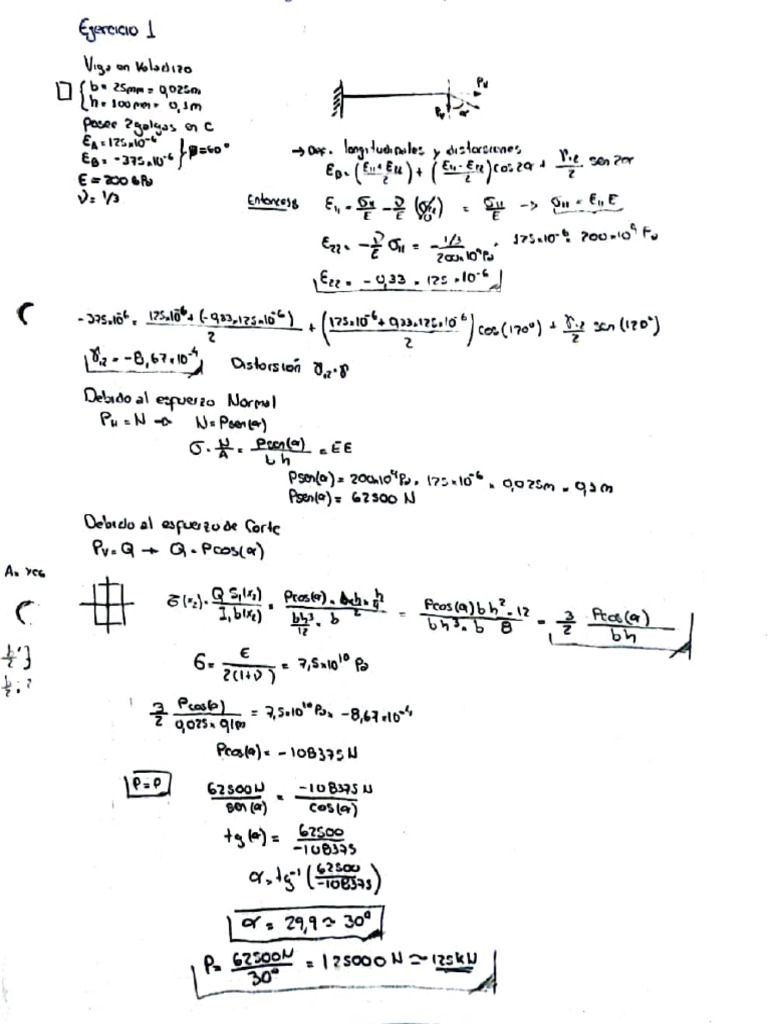 Ejercicio 1
Viga en Voladizo
b = 25mm = 0,025m
h = 100mm = 0,1m
Posee 2 galgas en C
εA = 125x10⁻⁶
εB = -375x10⁻⁶
β = 60°
E = 200 GPa
ν = 1/3
Pu
Pv
α
→ Def. longitudinales y distorsiones
εB = (ε11 + ε22 / 2) + (ε11 - ε22 / 2) cos 2α + γ12/2 sen 2α
Entonces ε11 = σ11/E - ν/E (σ22) = σ11/E → σ11 = ε11 E
0
ε22 = -ν/E σ11 = -1/3 / 200x10⁹Pa · 125x10⁻⁶ · 200x10⁹ Pa
ε22 = -0,33 · 125 · 10⁻⁶
-375x10⁻⁶ = 125x10⁻⁶ + (-0,33·125x10⁻⁶) / 2 + (125x10⁻⁶ + 0,33·125x10⁻⁶ / 2) cos(120°) + γ12/2 sen(120°)
γ12 = -8,67x10⁻⁴ Distorsión γ12 = γ
Debido al esfuerzo Normal
Pu = N → N = Psen(α)
σ = N/A = Psen(α) / b h = E ε
Psen(α) = 200x10⁹Pa · 125x10⁻⁶ · 0,025m · 0,1m
Psen(α) = 62500 N
Debido al esfuerzo de Corte
Pv = Q → Q = Pcos(α)
G = E / 2(1+ν) = 7,5x10¹⁰ Pa
3/2 Pcos(α) / 0,025·0,1m = 7,5x10¹⁰ Pa · -8,67x10⁻⁴
Pcos(α) = -108375 N
P = P
62500N / sen(α) = -108375 N / cos(α)
tg(α) = 62500 / -108375
α = tg⁻¹ (62500 / -108375)
α = 29,9 ≃ 30°
P = 62500N / 30° = 125000 N ≃ 125kN